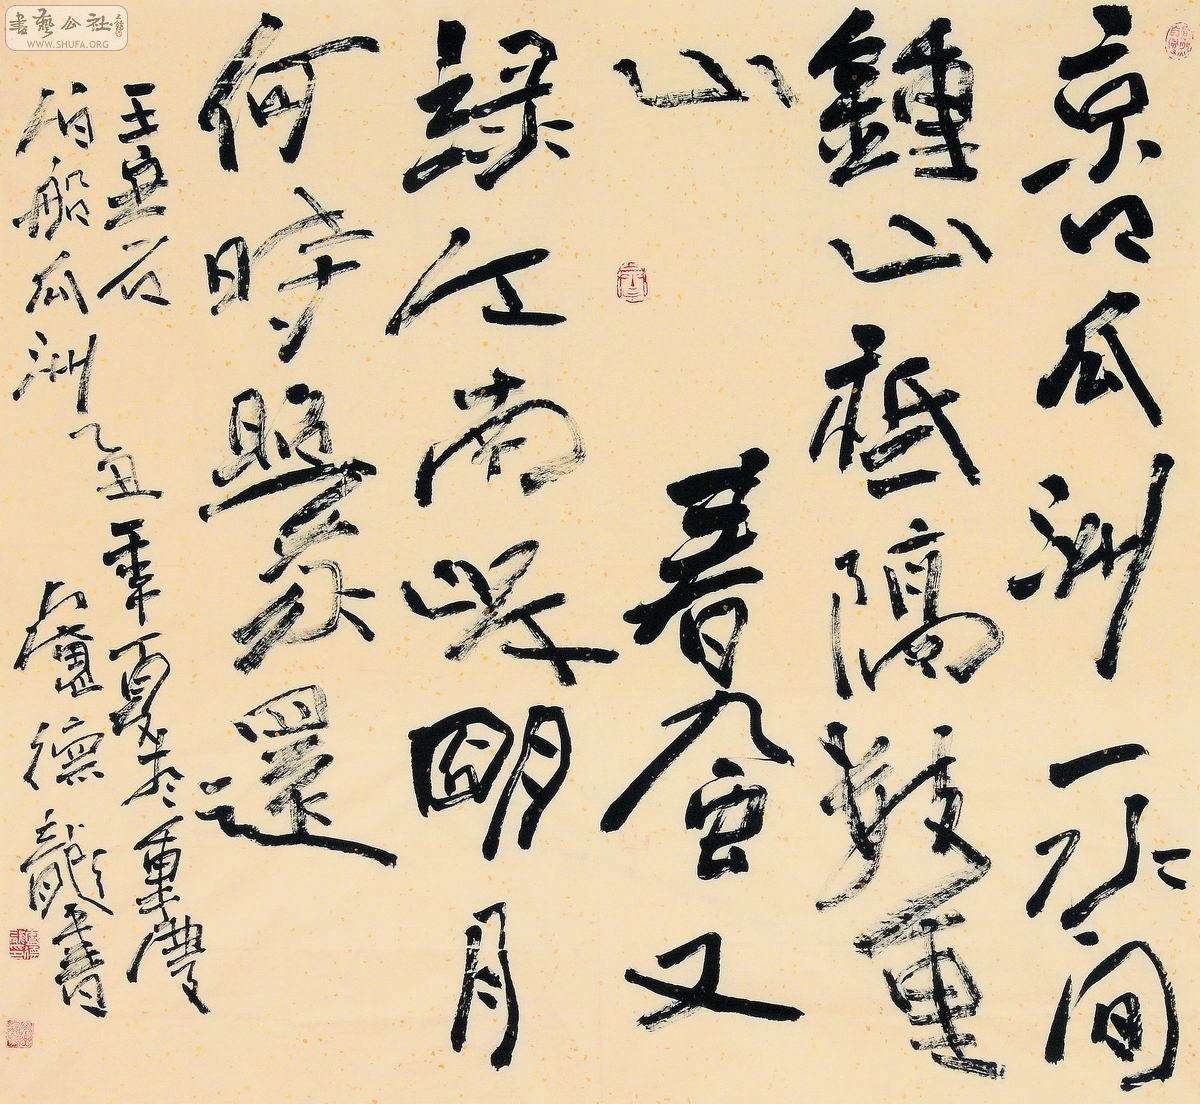 書藝公社
WWW.SHUFA.ORG
京口瓜洲一水间
鍾山祗隔數重
山春風又
綠江南岸朙月
何時照我還
王安石
泊船瓜洲乙丑年夏於重慶
盧德龍書